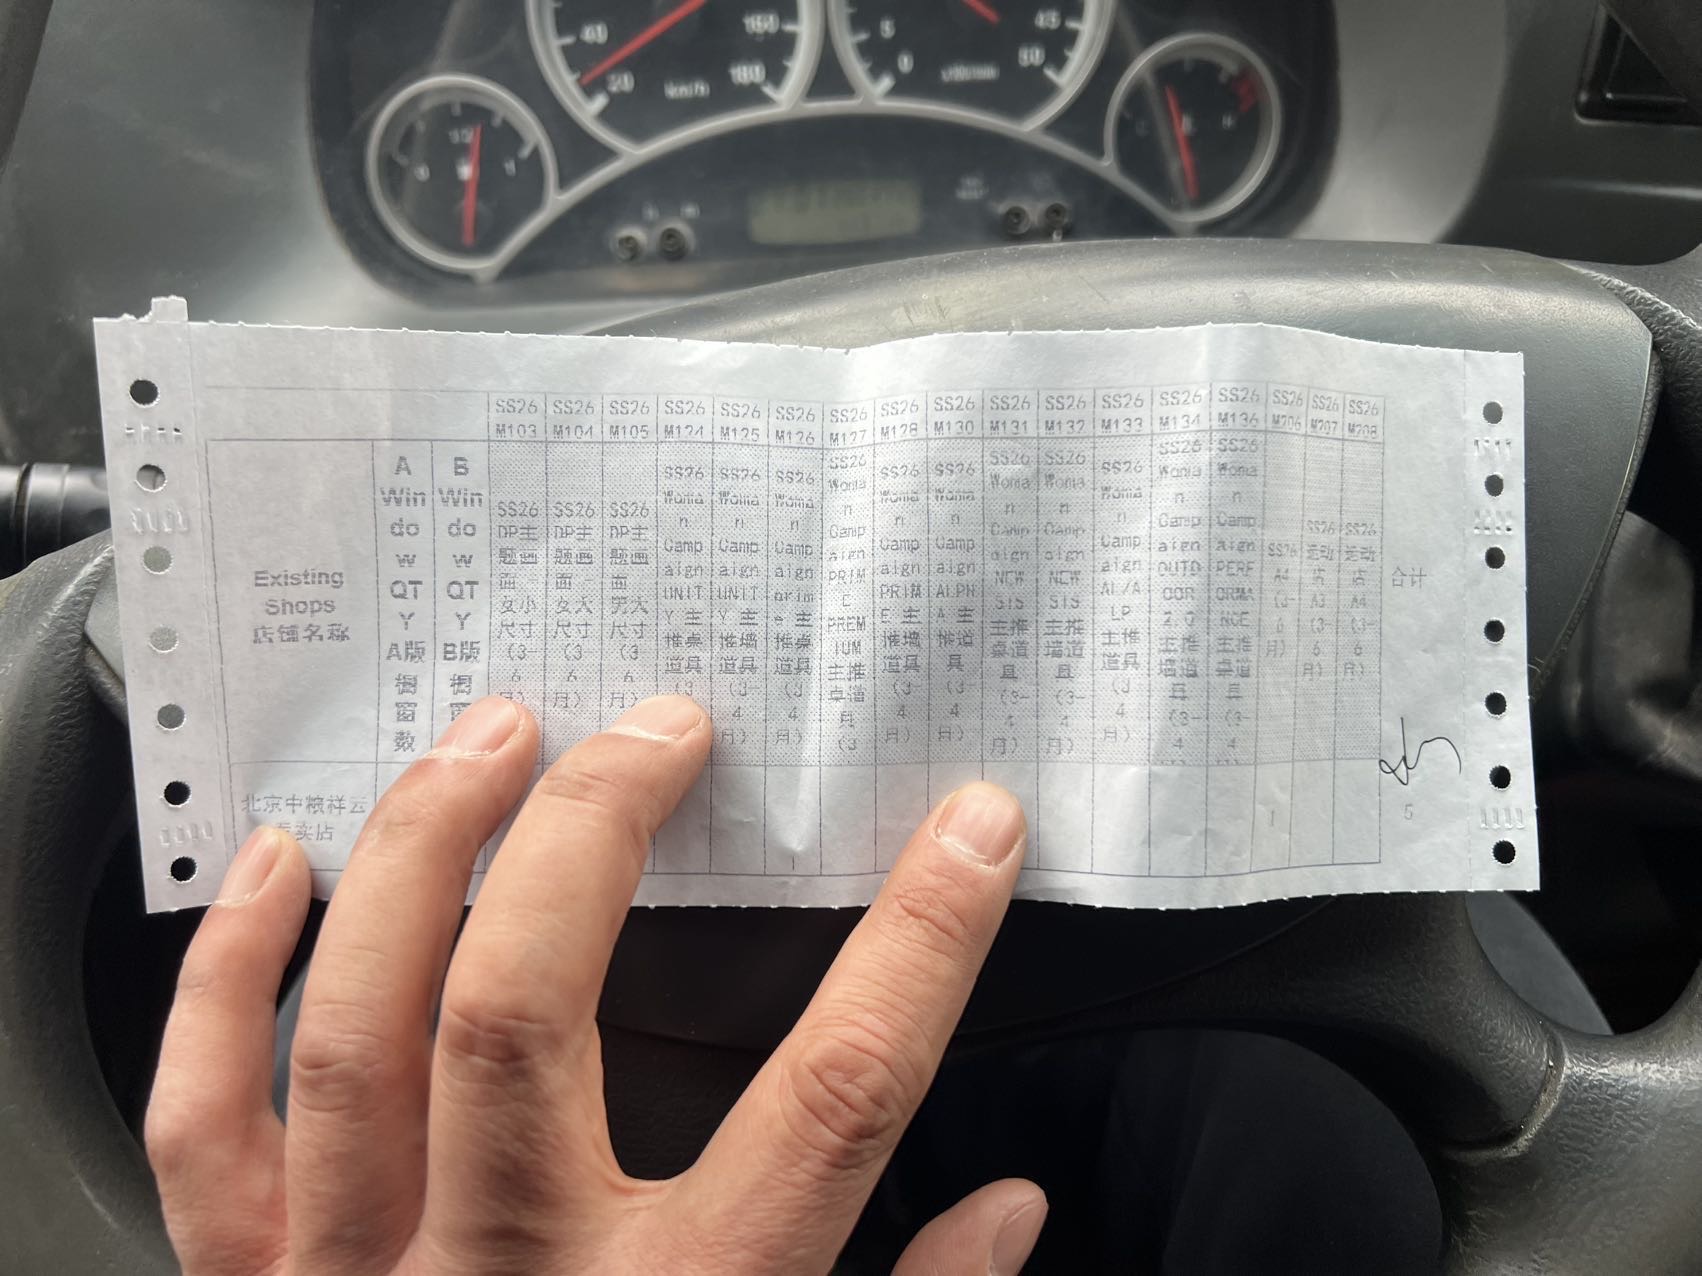 40
20
km/h
160
180
5
0
45
50
SS26 SS26 SS26 SS26 SS26 SS26 SS26 SS26 SS26 SS26 SS26 SS26 SS26 SS26 SS26 SS26 SS26
M103 M104 M105 M124 M125 M126 M127 M128 M130 M131 M132 M133 M134 M136 M206 M207 M208
Existing
Shops
店铺名称
A
Win
do
w
QT
Y
A版
橱
窗
数
B
Win
do
w
QT
Y
B版
橱
SS26
DP主
题画
面
女小
尺寸
(3-
6
月)
SS26
DP主
题画
面
女大
尺寸
(3
6
月)
SS26
DP主
题画
面
男大
尺寸
(3
6
月)
SS26
Woma
n
Camp
aign
UNIT
Y 主
推桌
道具
(3
SS26
Woma
n
Camp
aign
UNIT
Y 主
推墙
道具
(3-
4
月)
SS26
Woma
n
Camp
aign
Prim
e 主
推桌
道具
(3
4
月)
SS26
Woma
n
Camp
aign
PRIM
E
PREM
IUM
主推
桌道
具
(3
SS26
Woma
n
Camp
aign
PRIM
E 主
推墙
道具
(3
4
月)
SS26
Woma
n
Camp
aign
ALPH
A 主
推道
具
(3
4
月)
SS26
Woma
n
Camp
aign
NEW
SIS
主推
桌道
具
(3-
4
月)
SS26
Woma
n
Camp
aign
NEW
SIS
主推
墙道
具
(3-
4
月)
SS26
Woma
n
Camp
aign
AL/A
LP
主推
道具
(3
4
月)
SS26
Woma
n
Camp
aign
OUTD
OOR
2.0
主推
墙道
具
(3-
4
SS26
Woma
n
Camp
aign
PERF
ORMA
NCE
主推
桌道
具
(3-
4
SS26
A4
(3-
6
月)
SS26
运动
店
A3
(3-
6
月)
SS26
运动
店
A4
(3-
6
月)
合计
北京中粮祥云
专卖店
1
1
5